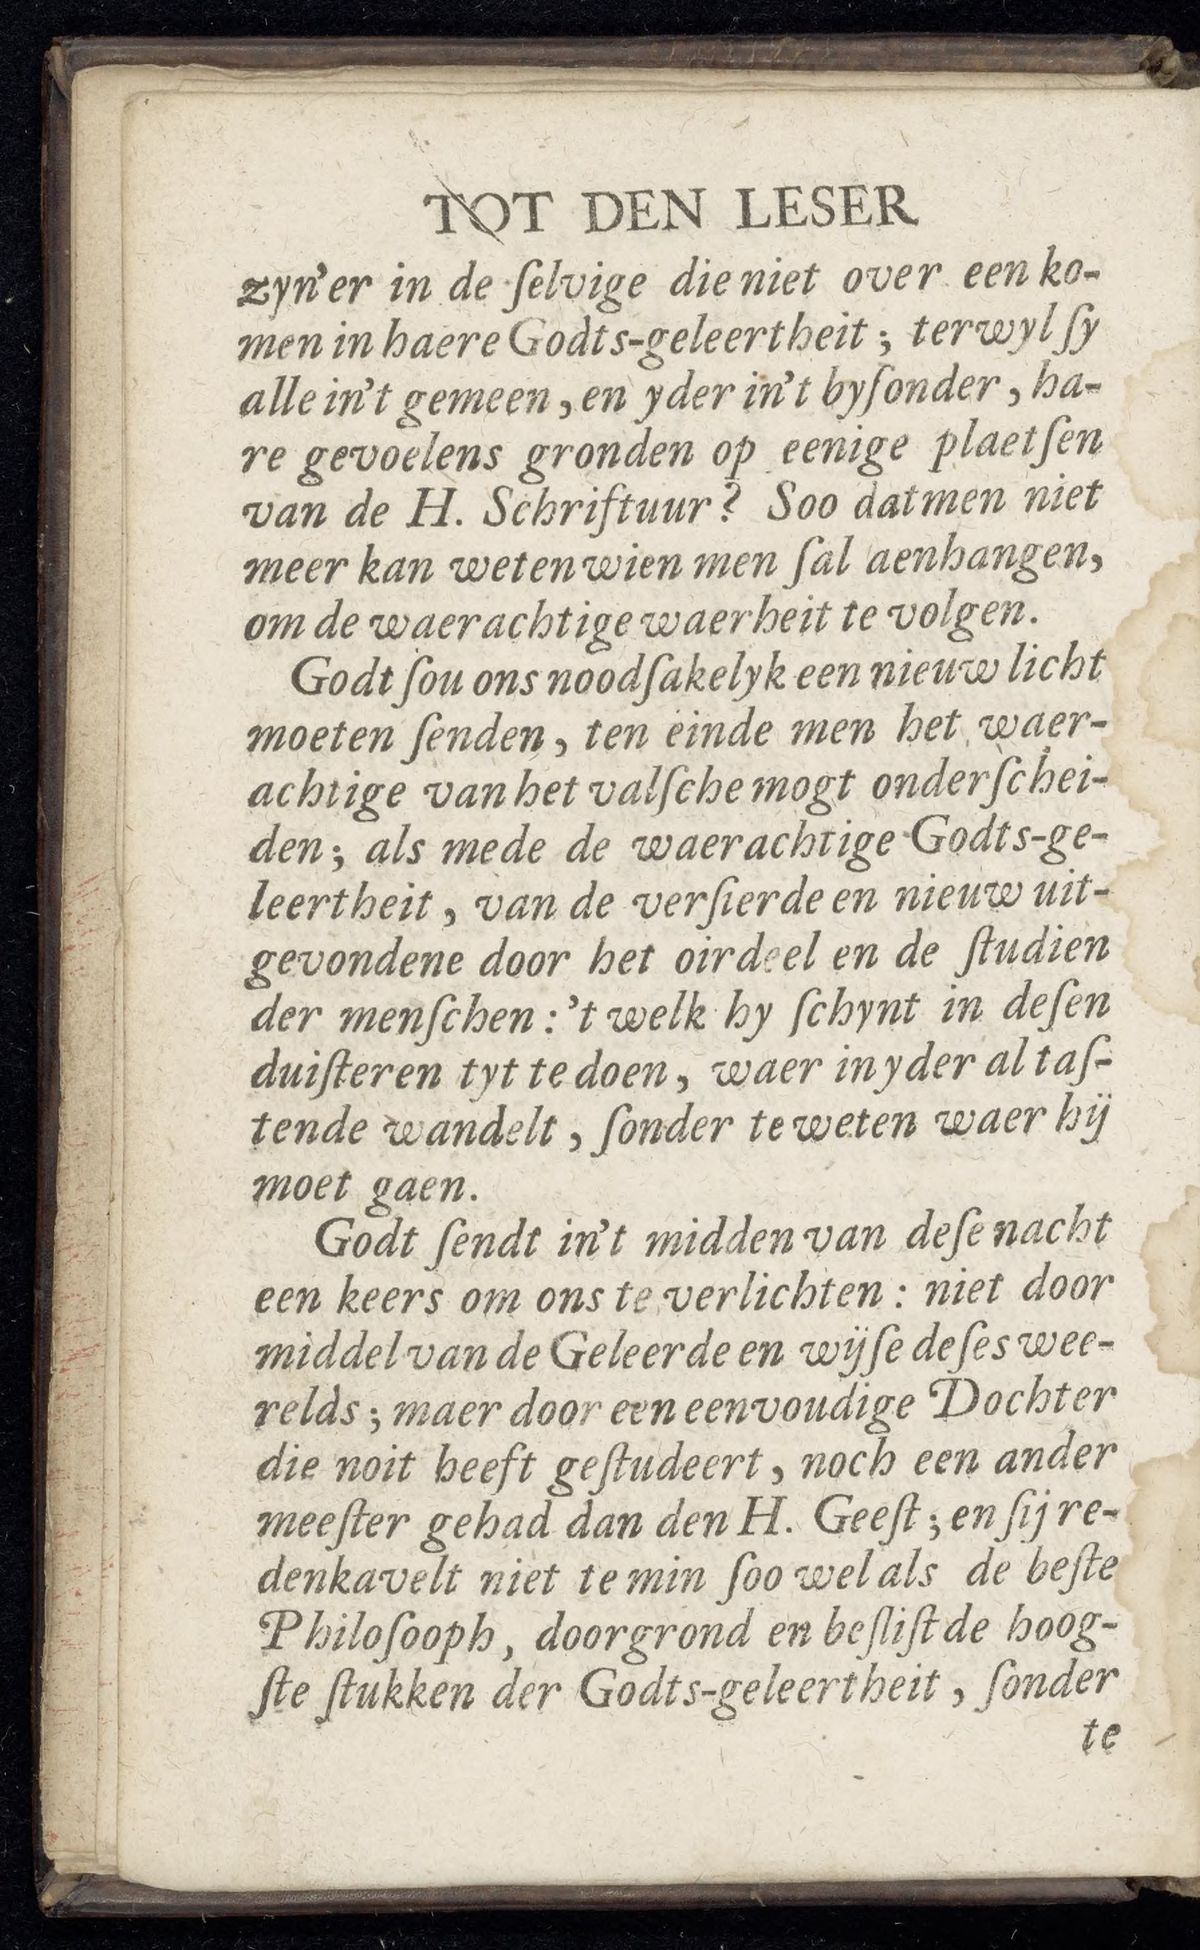 TOT DEN LESER
zyn'er in de ſelvige die niet over een ko-
men in haere Godts-geleertheit; terwyl ſy
alle in't gemeen, en yder in't byſonder, ha-
re gevoelens gronden op eenige plaetſen
van de H. Schriftuur? Soo datmen niet
meer kan weten wien men ſal aenhangen,
om de waerachtige waerheit te volgen.
Godt ſou ons noodſakelyk een nieuw licht
moeten ſenden, ten einde men het waer-
achtige van het valſche mogt onderſchei-
den; als mede de waerachtige Godts-ge-
leertheit, van de verſierde en nieuw uit-
gevondene door het oirdeel en de ſtudien
der menſchen: 't welk hy ſchynt in deſen
duiſteren tyt te doen, waer in yder al taſ-
tende wandelt, ſonder te weten waer hij
moet gaen.
Godt ſendt in't midden van deſe nacht
een keers om ons te verlichten: niet door
middel van de Geleerde en wijſe deſes wee-
relds; maer door een eenvoudige Dochter
die noit heeft geſtudeert, noch een ander
meeſter gehad dan den H. Geeſt; en ſij re-
denkavelt niet te min ſoo wel als de beſte
Philoſooph, doorgrond en beſliſt de hoog-
ſte ſtukken der Godts-geleertheit, ſonder
te